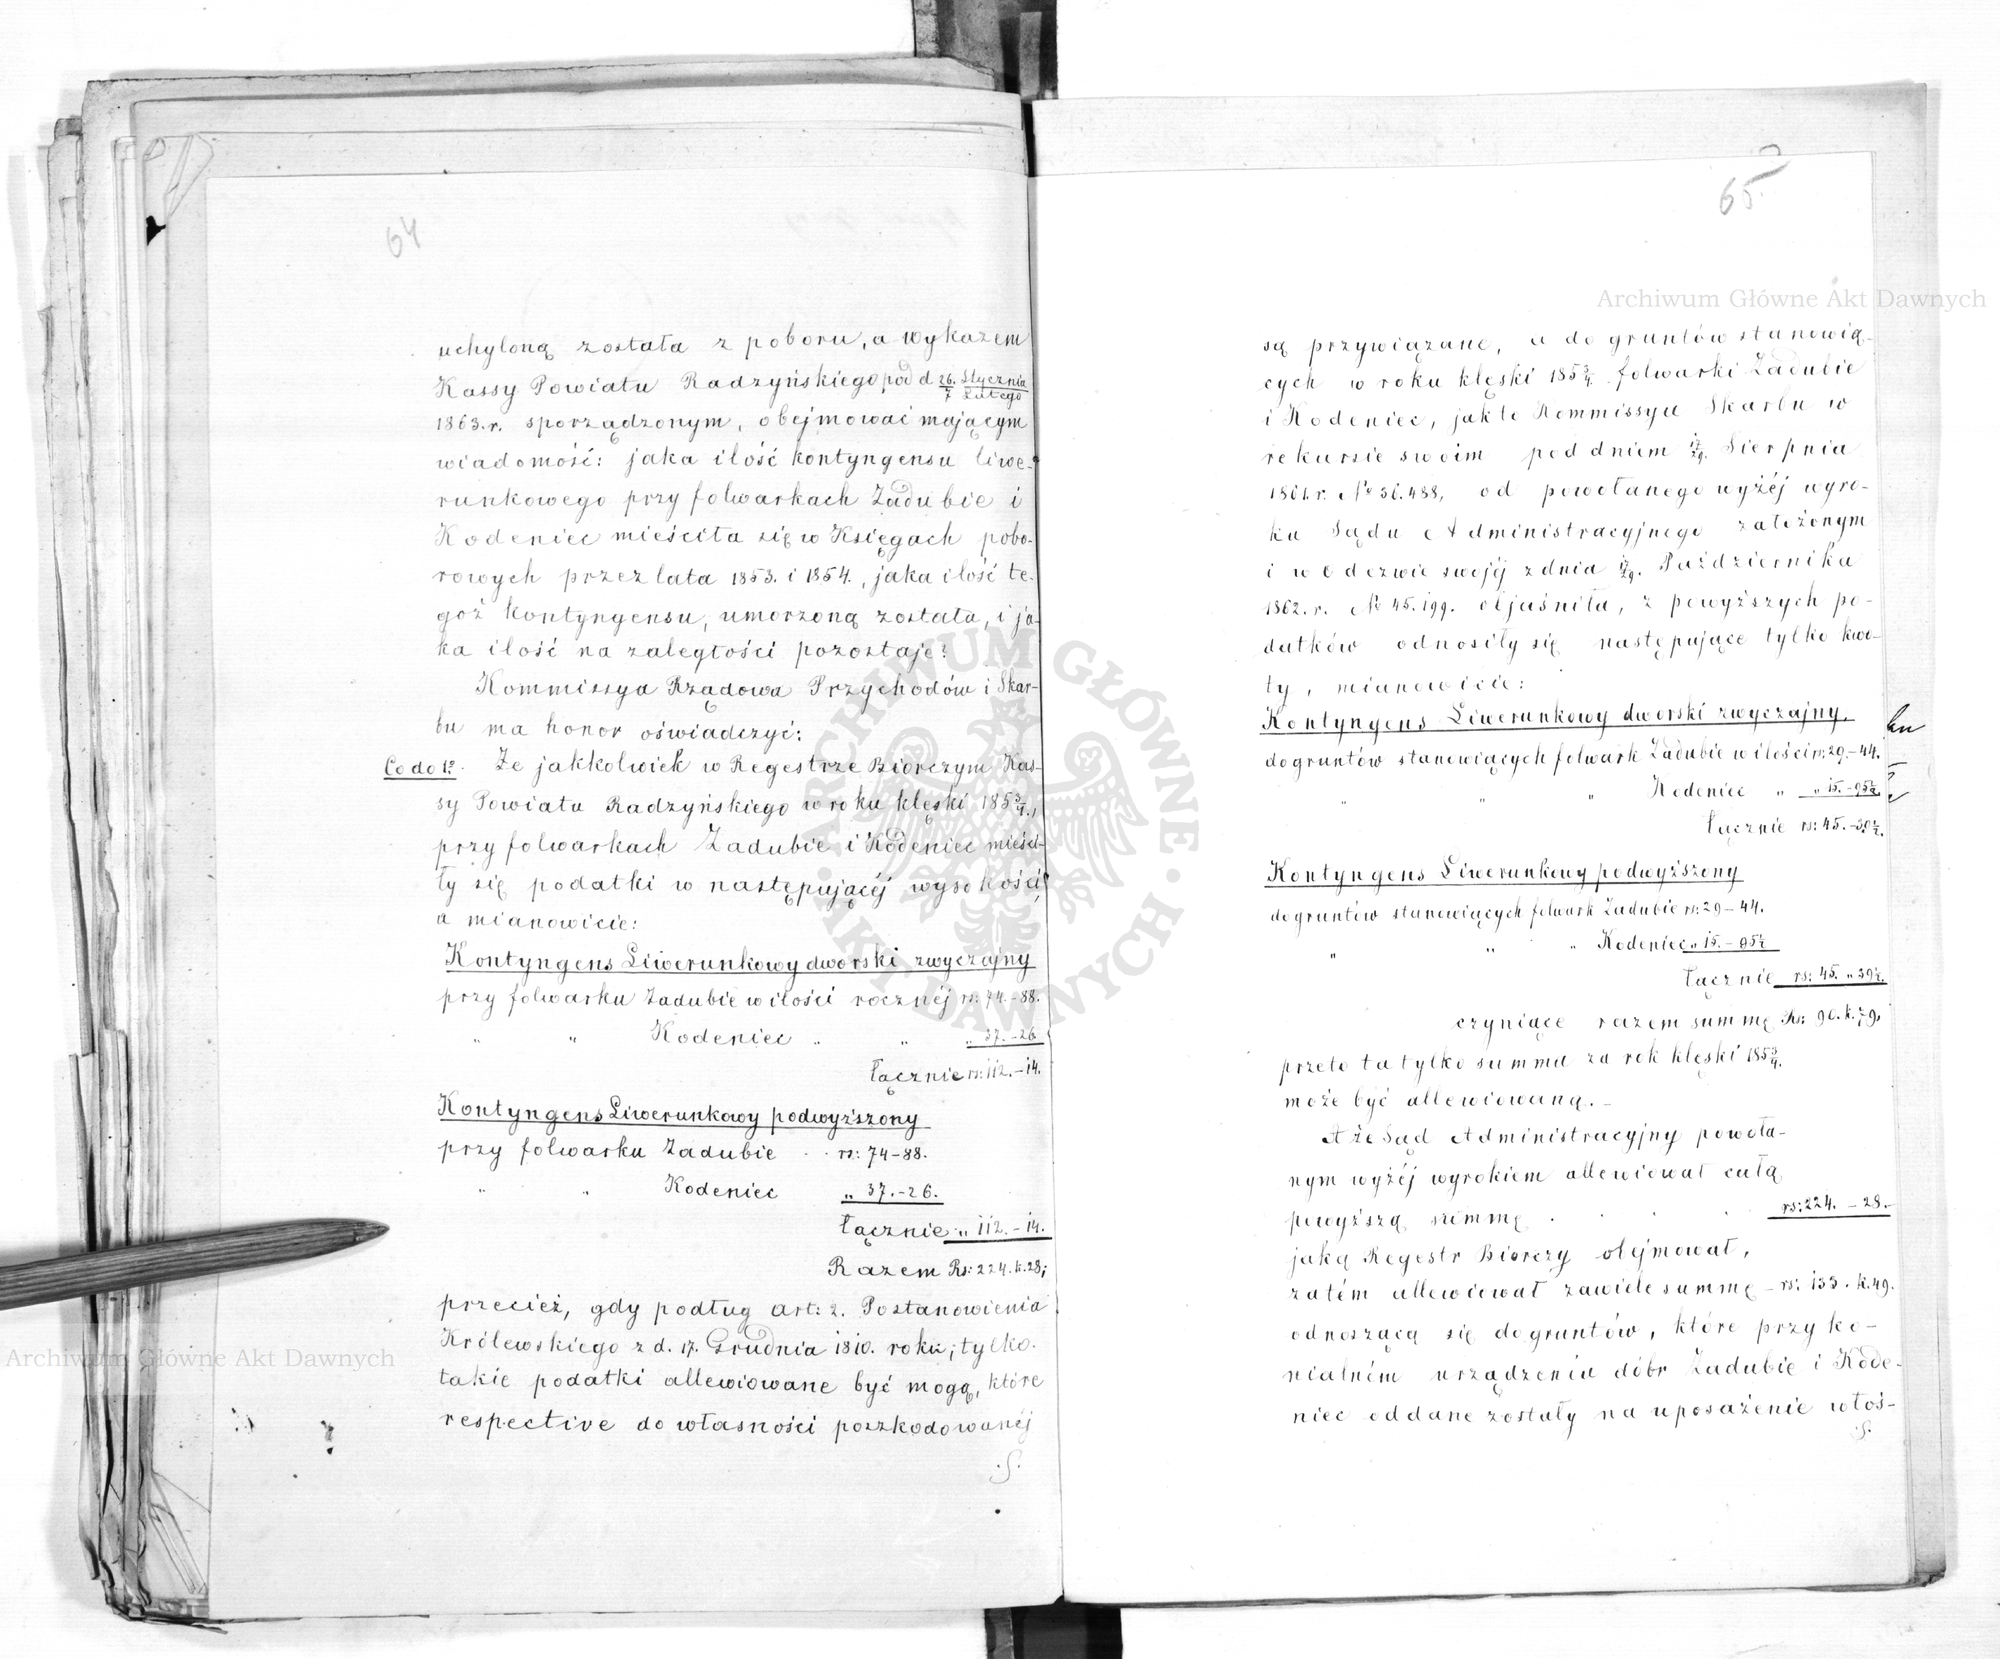 64
uchyloną została z poboru, a wykazem
Kassy Powiatu Radzyńskiego pod d 26. Stycznia / 7 Lutego
1863. r. sporządzonym, obejmować mającym
wiadomość: jaka ilość kontyngensu liwe-
runkowego przy folwarkach Żadubie i
Kodeniec mieściła się w Księgach pobo-
rowych przez lata 1853. i 1854., jaka ilość te-
goż kontyngensu, umorzoną została, i ja-
ka ilość na zaległości pozostaje?
Kommissya Rządowa Przychodów i Skar-
bu ma honor oświadczyć:
Co do 1º. Że jakkolwiek w Regestrze Biorczym Kas-
sy Powiatu Radzyńskiego w roku klęski 185 3/4.,
przy folwarkach Żadubie i Kodeniec mieści-
ły się podatki w następującéj wysokości,
a mianowicie:
Kontyngens Liwerunkowy dworski zwyczajny
przy folwarku Żadubie w ilości rocznéj rs: 74.-88.
" " Kodeniec " " " 37.-26
łącznie rs: 112.-14.
Kontyngens Liwerunkowy podwyższony
przy folwarku Żadubie . . rs: 74-88.
" " Kodeniec " 37.-26.
łącznie " 112.-14.
Razem Rs: 224. k. 28;
przecież, gdy podług art: 2. Postanowienia
Królewskiego z d. 17. Grudnia 1810. roku; tylko
takie podatki allewiowane być mogą, które
respective do własności poszkodowanéj
65
są przywiązane, a do gruntów stanowią-
cych w roku klęski 185 3/4. folwarki Żadubie
i Kodeniec, jak to Kommissya Skarbu w
rekursie swoim pod dniem 17/29. Sierpnia
1861. r. Nº 36.488, od powołanego wyżéj wyro-
ku Sądu Administracyjnego założonym
i w Odezwie swojéj z dnia 17/29. Października
1862. r. Nº 45.199. objaśniła, z powyższych po-
datków odnosiły się następujące tylko kwo-
ty, mianowicie:
Kontyngens Liwerunkowy dworski zwyczajny.
do gruntów stanowiących folwark Żadubie w ilości rs: 29.-44.
" " " Kodeniec " " 15.-95½
łącznie rs: 45.-39½.
Kontyngens Liwerunkowy podwyższony
do gruntów stanowiących folwark Żadubie rs: 29-44.
" " " Kodeniec " 15.-95½
łącznie rs: 45. " 39½.
czyniące razem summę Rs: 90. k. 79,
przeto ta tylko summa za rok klęski 185 3/4.
może być allewiowaną. -
A że Sąd Administracyjny powoła-
nym wyżéj wyrokiem allewiował całą
powyższą summę . . . rs: 224. - 28. -
jaką Regestr Biorczy obejmował,
zatém allewiował zawiele summę - rs: 133. k. 49.
odnoszącą się do gruntów, które przy ko-
nialném urządzeniu dóbr Żadubie i Kode-
niec oddane zostały na uposażenie włoś-
Archiwum Główne Akt Dawnych
Archiwum Główne Akt Dawnych
ARCHIWUM GŁÓWNE AKT DAWNYCH